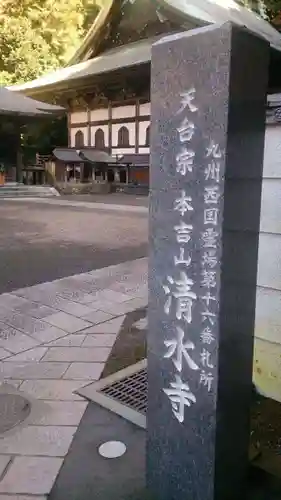 九州西国霊場第十六番札所
天台宗 本吉山 清水寺